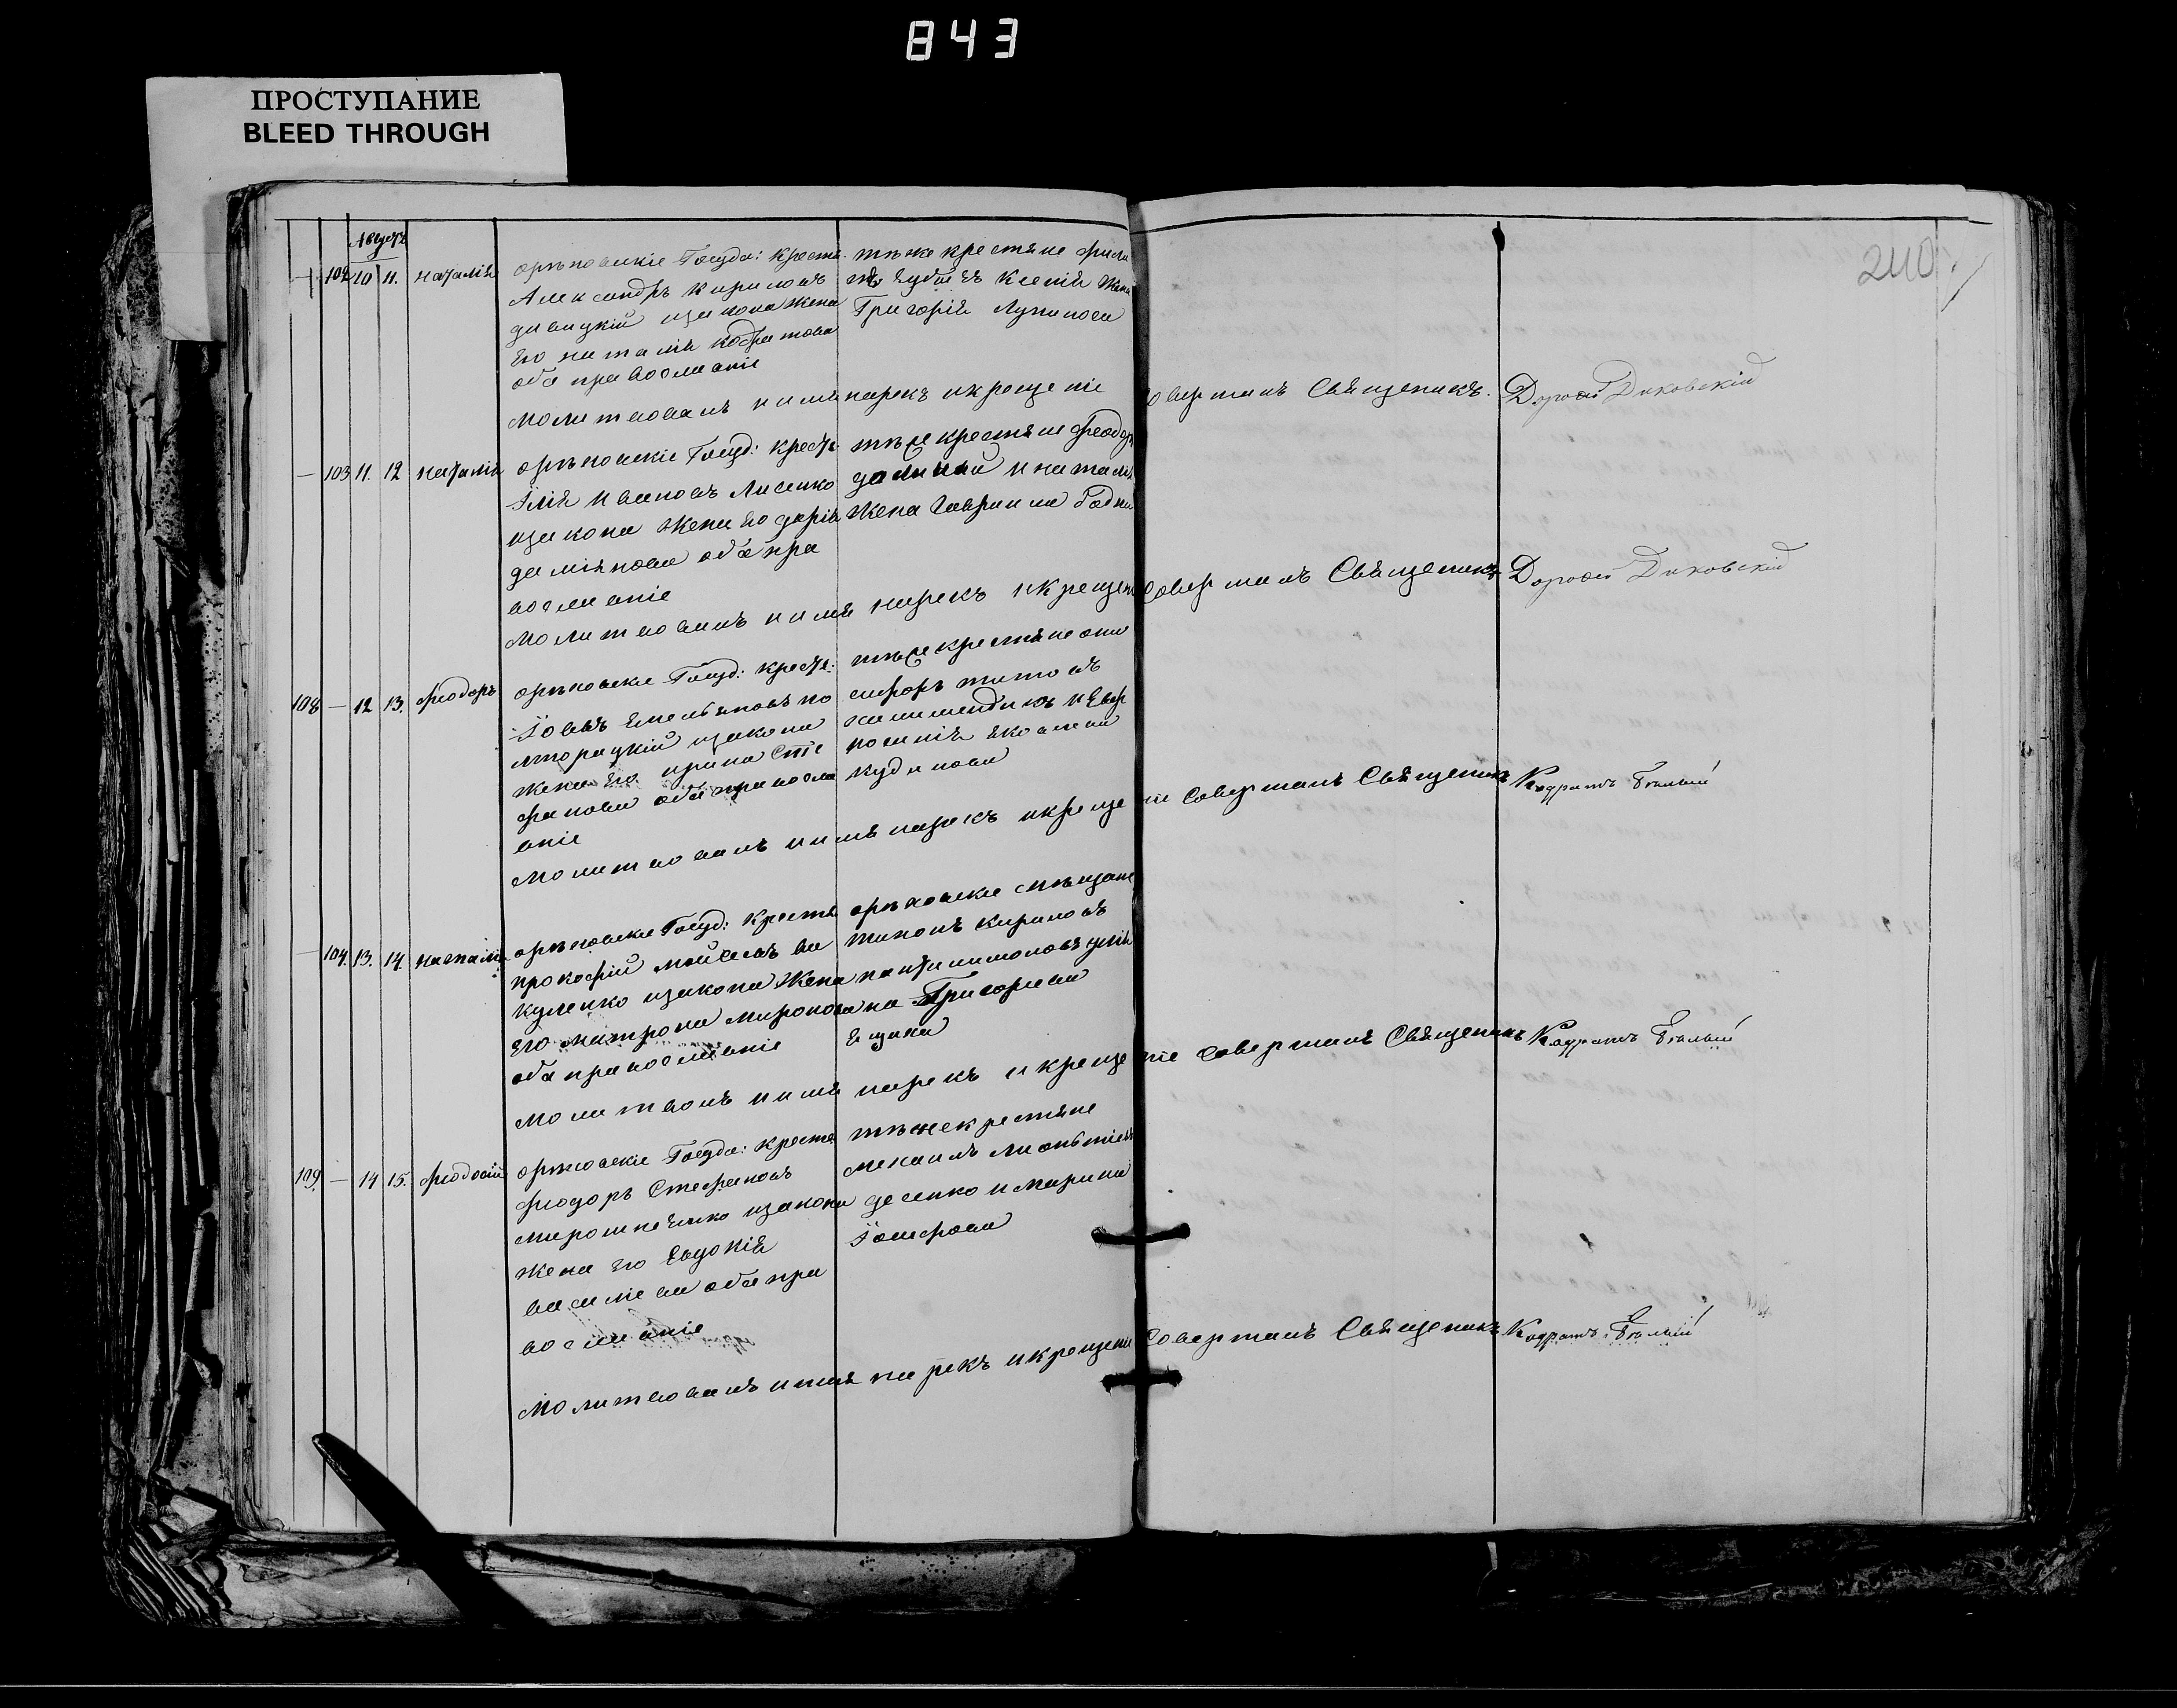 843
ПРОСТУПАНИЕ
BLEED THROUGH
240
Августъ
— 102 10 11. наталія
орѣховскіе Госуда: Крестя.
Александръ Кириловъ
дивицкій изаконажена
Его наталія кодратова
оба православніе
тѣже крестяне
Ксенія Жена
Григорія Лупинога
молитвовалъ иимя нарекъ икрещеніе Совершалъ Священикъ. Дорофей Диковскій
— 103 11. 12 наталія
орѣховскіе Госуд: Крестя
Ілія Ивановъ Лисенко
изакона Жена Его дарія
даміянова оба пра
вославніе
тѣже крестяне феодоръ
и наталія
Жена Гавриила
молитвовалъ иимя нарекъ икрещеніе Совершалъ Священикъ Дорофей Диковскій
108 — 12 13. фіодоръ
орѣховскіе Госуд: Крестя.
Іовъ Емельяновъ по
лторацкій изакона
жена Его ирина Сте
фанова оба правосла
вніе
тѣже крестяне
титовъ
и Евф
росинія Яковлева
кудинова
молитвовалъ иимя нарекъ икрещеніе Совершалъ Священикъ Кодратъ Бѣлый
— 104. 13. 14. наталія
орѣховскіе Госуд: Крестя
прокофій мойсевъ ва
куленко изакона Жена
Его матрона миронова
оба православніе
орѣховскіе мѣщане
тихонъ Кириловъ
на Григориева
Ещина
молитвовалъ иимя нарекъ икрещеніе Совершалъ Священикъ Кодратъ Бѣлый
109. — 14 15. фіодосій
орѣховскіе Госуда: Крестя
фіодоръ Стефановъ
мирошненко изакона
жена Его Евдокія
василіева оба пра
вославніе
тѣже крестяне
михаилъ леонтіевъ
десенко и марина
Іосифова
молитвовалъ иимя нарекъ икрещеніе Совершалъ Священикъ Кодратъ Бѣлый